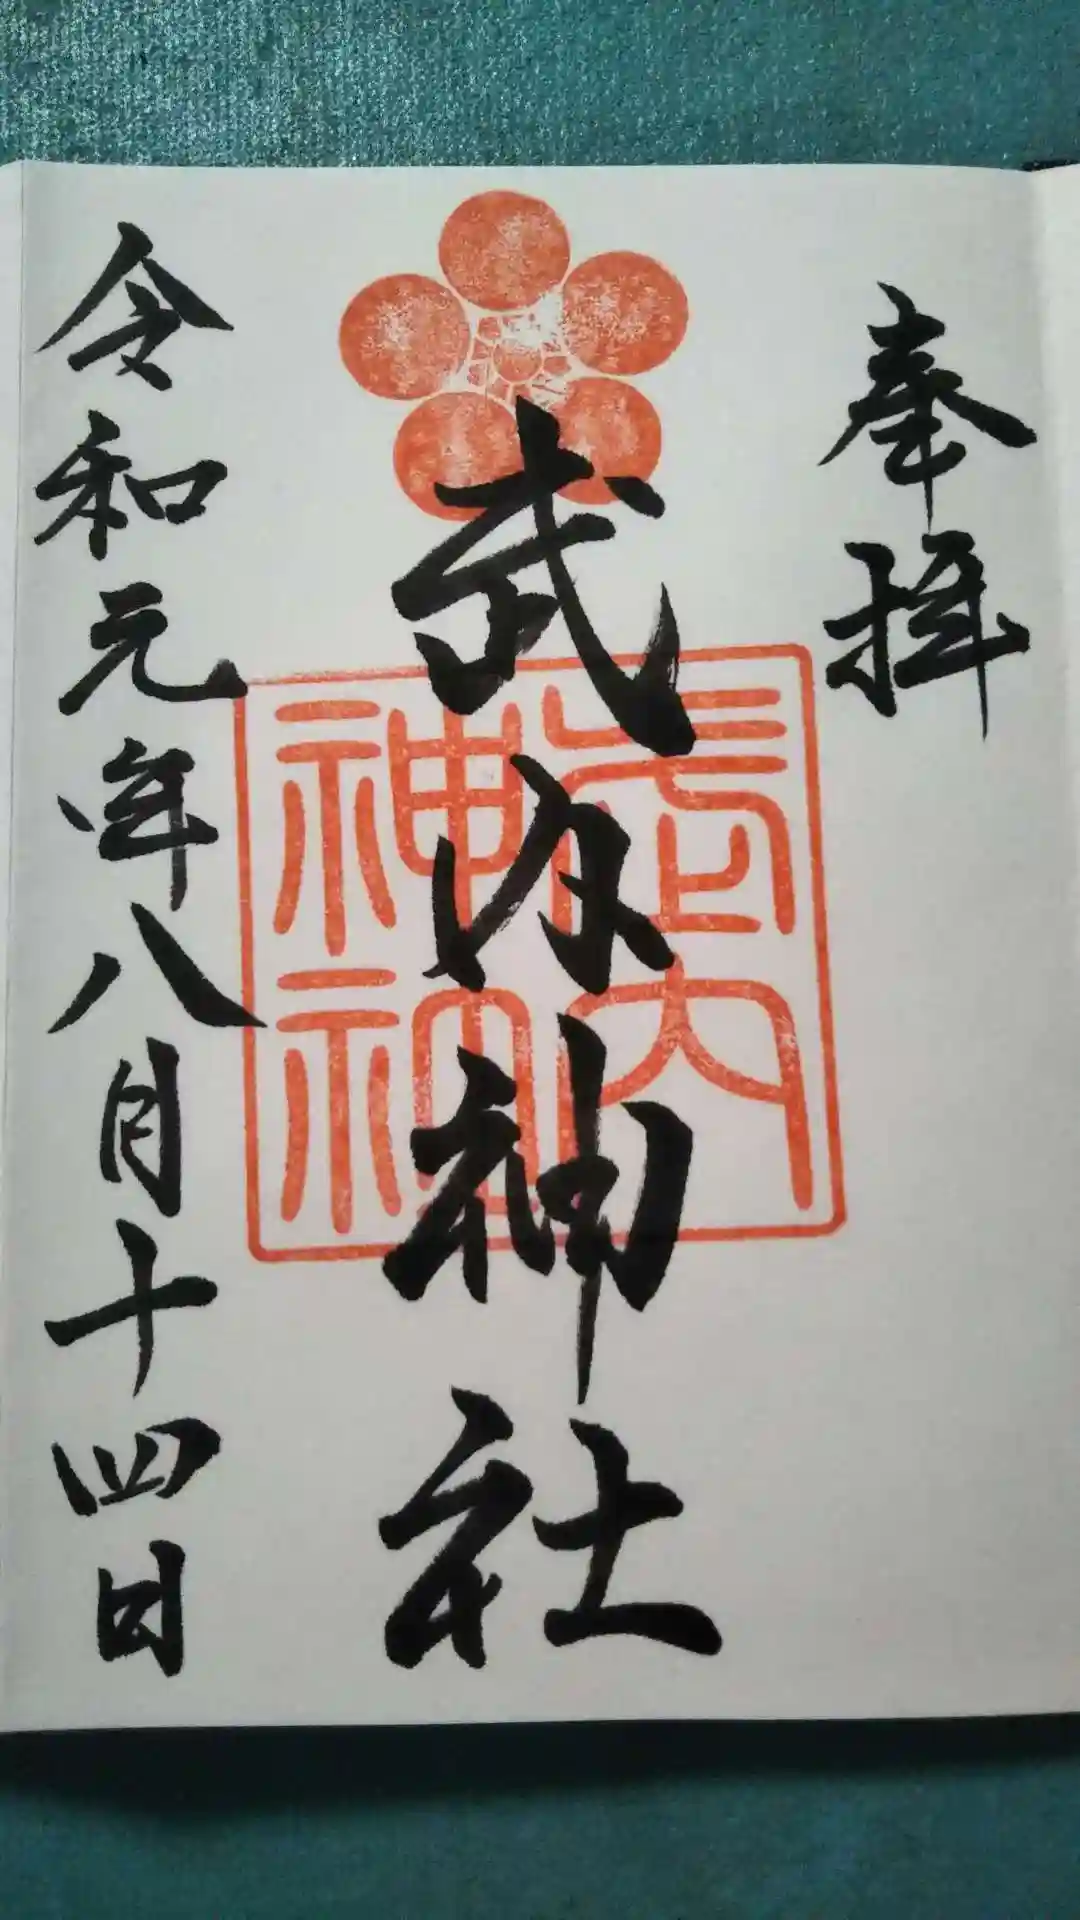 奉拝
武内神社
武内
神社
令和元年八月十四日